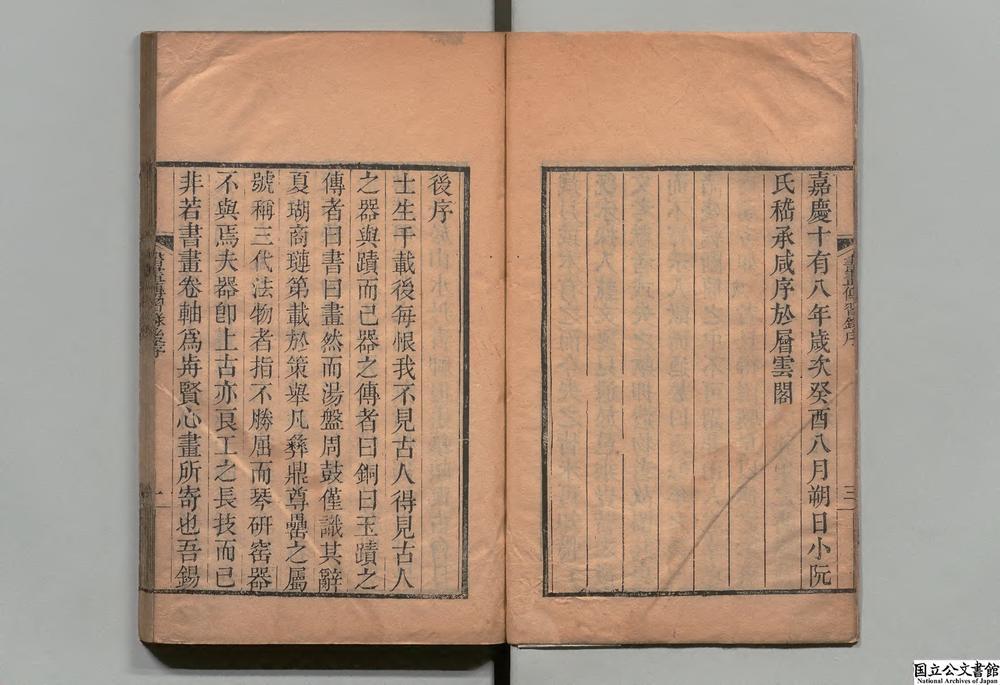 嘉慶十有八年歲次癸酉八月朔日小阮
氏嵇承咸序於層雲閣
書畫傳習錄序
三
後序
士生千載後每恨我不見古人得見古人
之器與蹟而已器之傳者曰銅曰玉蹟之
傳者曰書曰畫然而湯盤周鼓僅識其辭
夏瑚商璉第載於策舉凡彝鼎尊罍之屬
號稱三代法物者指不勝屈而琴硏窑器
不與焉夫器卽上古亦良工之長技而已
非若書畫卷軸爲歬賢心畫所寄也吾錫
書畫傳習錄後序
一
国立公文書館
National Archives of Japan